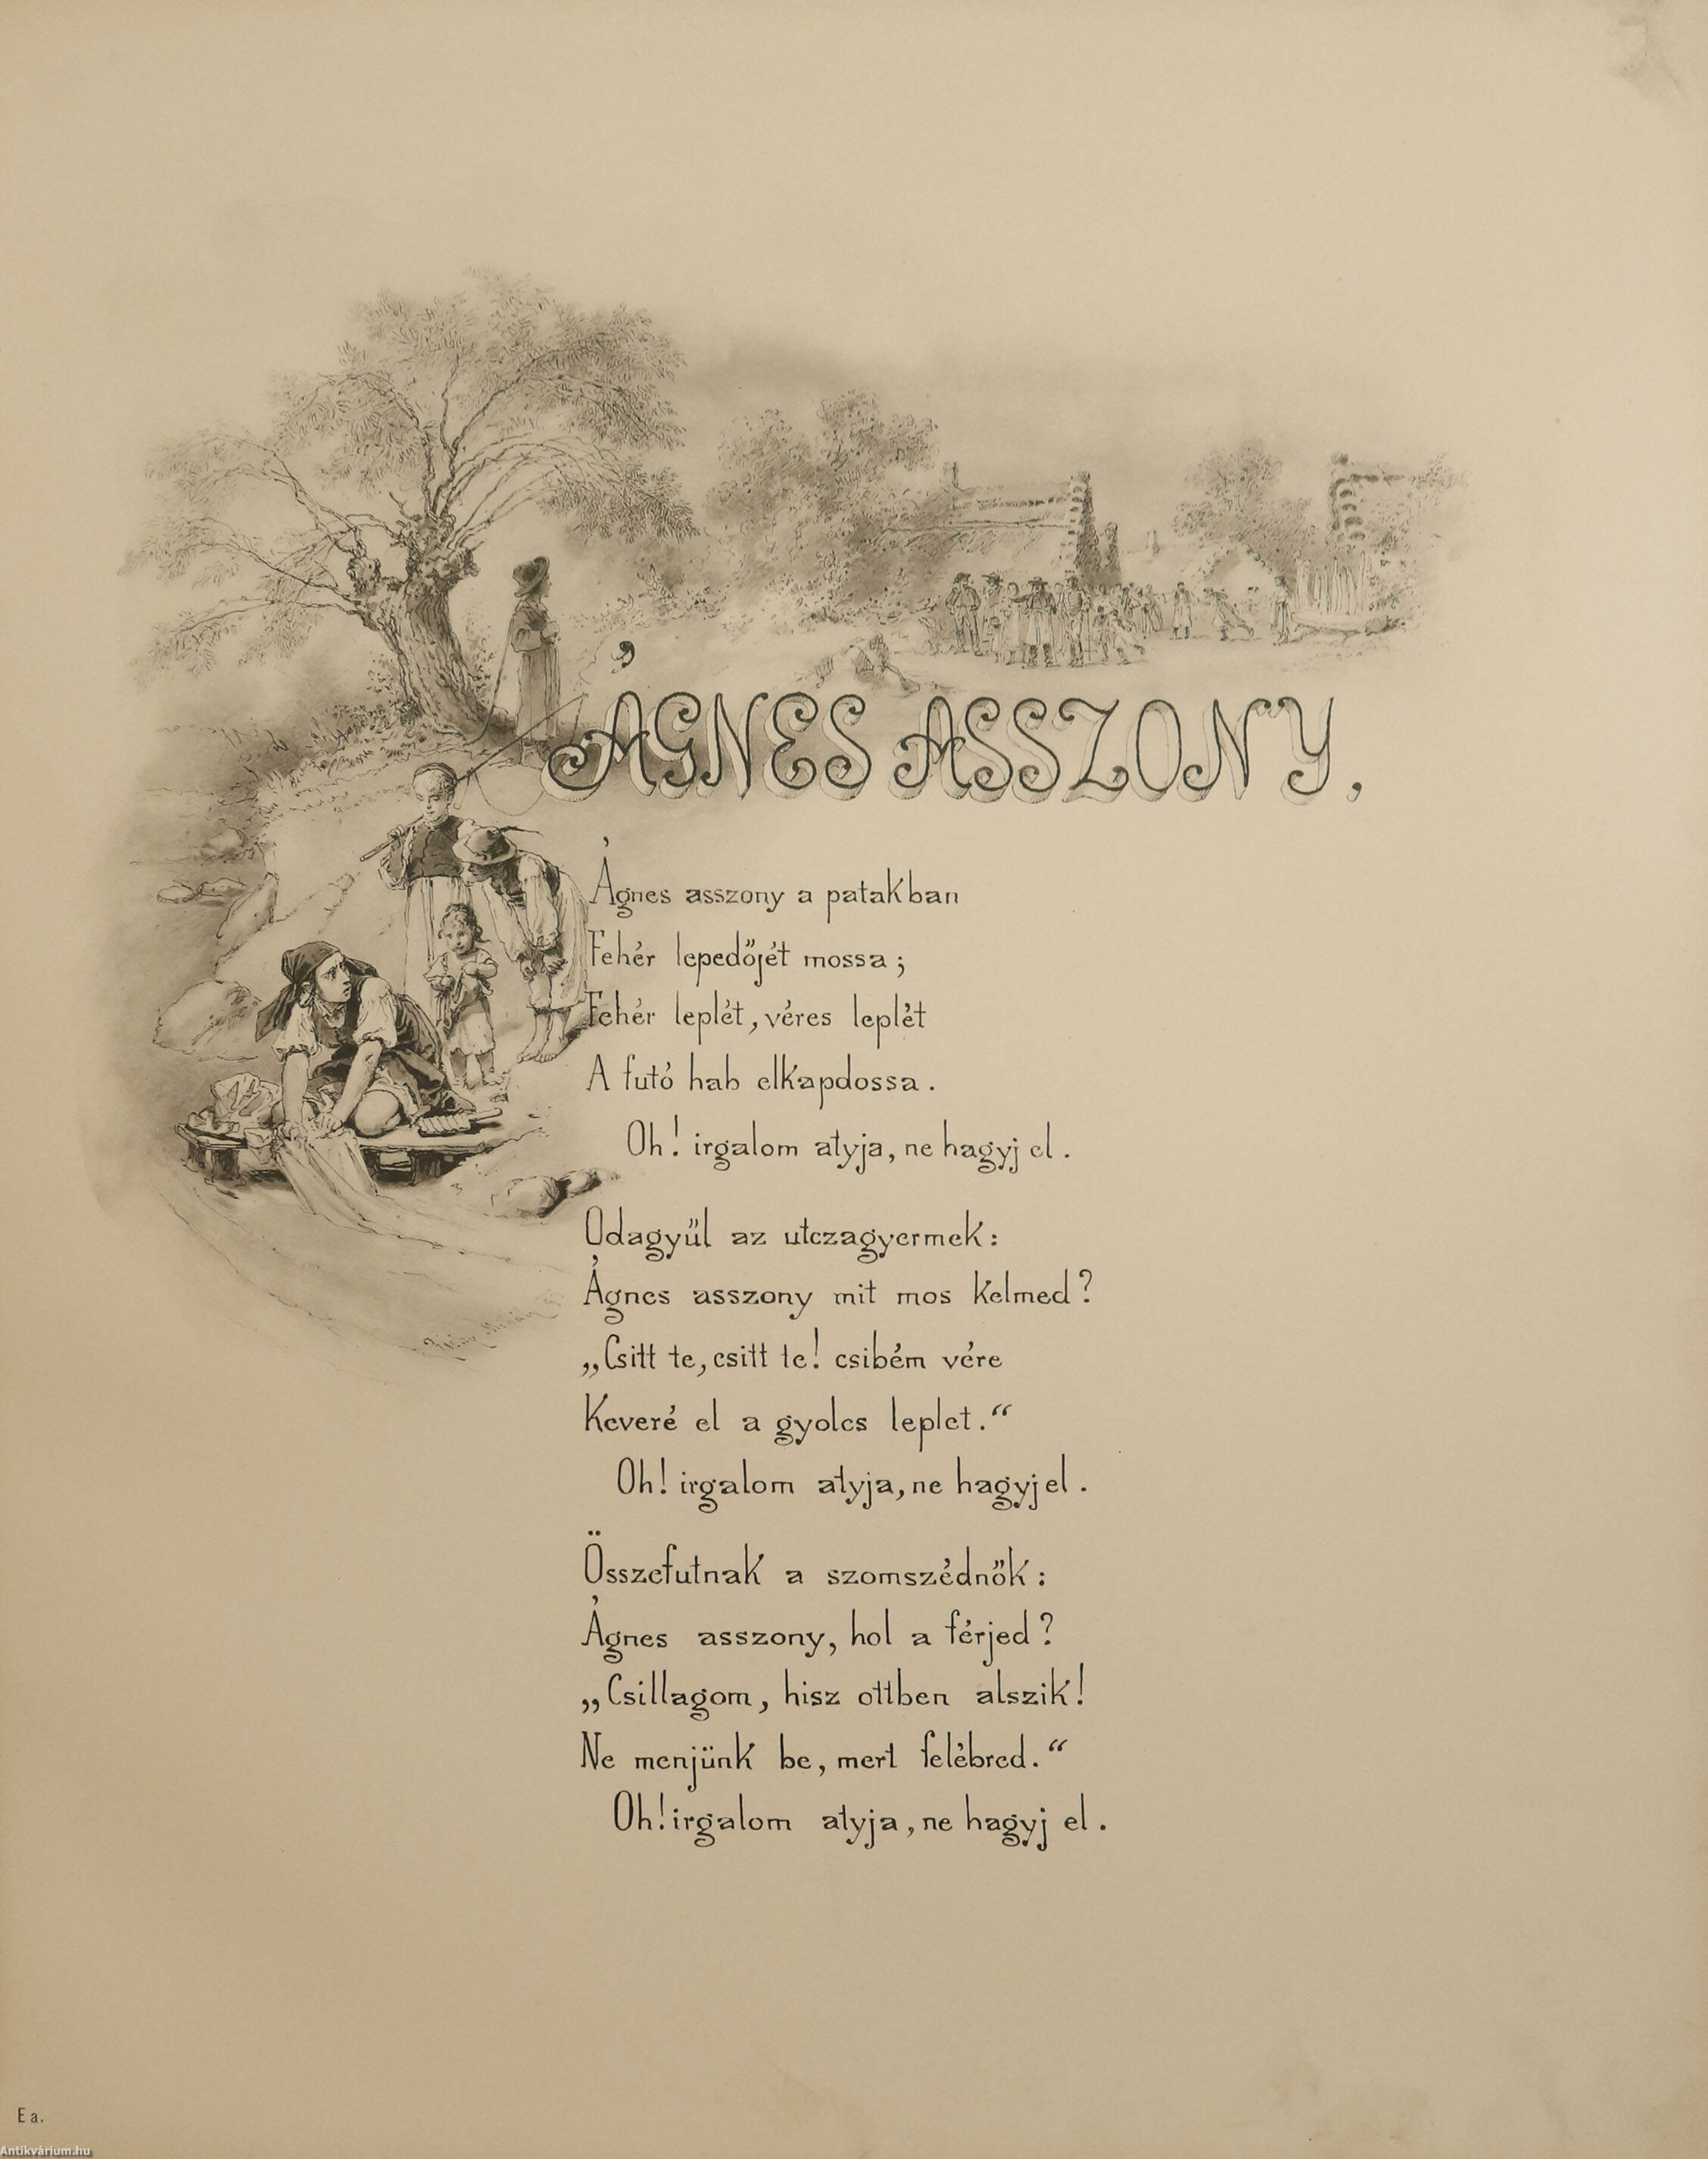 ÁGNES ASSZONY.
Ágnes asszony a patakban
Fehér lepedőjét mossa;
Fehér leplét, véres leplét
A futó hab elkapdossa.
Oh! irgalom atyja, ne hagyj el.
Odagyűl az utczagyermek:
Ágnes asszony mit mos kelmed?
„Csitt te, csitt te! csibém vére
Keveré el a gyolcs leplet.“
Oh! irgalom atyja, ne hagyj el.
Összefutnak a szomszédnők:
Ágnes asszony, hol a férjed?
„Csillagom, hisz ottben alszik!
Ne menjünk be, mert felébred.“
Oh! irgalom atyja, ne hagyj el.
Ea.
Antikvárium.hu